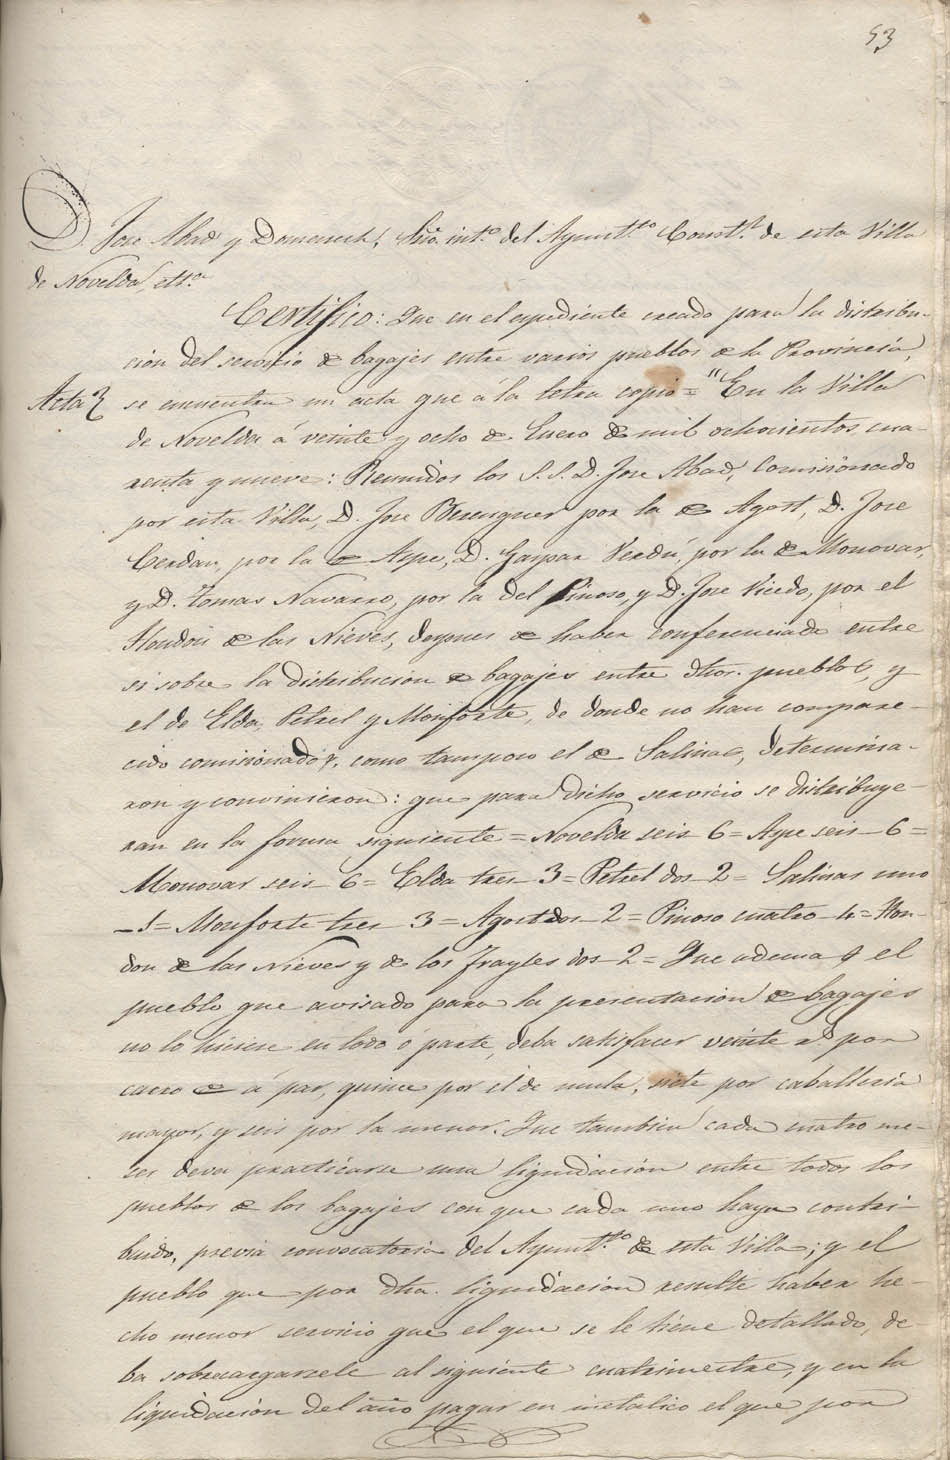 53
D. Jose Abad y Domenech, Srio. int.º del Ayunt.to Const.l de esta Villa
de Novelda, etta.
Certifico: Que en el espediente creado para la distribu-
cion del servicio de bagajes entre varios pueblos de la Provincia,
Acta se encuentra un acta que á la letra copio = "En la Villa
de Novelda á veinte y ocho de Enero de mil ochocientos cua-
renta y nueve: Reunidos los S.S. D. Jose Abad, Comisionado
por esta Villa, D. Jose Berenguer por la de Agost, D. Jose
Cerdan, por la de Aspe, D. Gaspar Verdú, por la de Monovar,
y D. Tomas Navarro, por la del Pinoso, y D. Jose Vicedo, por el
Hondon de las Nieves, despues de haber conferenciado entre
si sobre la distribucion de bagajes entre dhos. pueblos, y
el de Elda, Petrel y Monforte, de donde no han compare-
cido comisionados, como tampoco el de Salinas, determina-
ron y convinieron: que para dicho servicio se distribuye-
ran en la forma siguiente = Novelda seis 6 = Aspe seis 6 =
Monovar seis 6 = Elda tres 3 = Petrel dos 2 = Salinas uno
1 = Monforte tres 3 = Agost dos 2 = Pinoso cuatro 4 = Hon-
don de las Nieves y de los Frayles dos 2 = Que ademas el
pueblo que avisado para la presentacion de bagajes
no lo hiciere en todo ó parte, deba satisfacer veinte rs por
carro de á par, quince por el de mula, siete por caballeria
mayor, y seis por la menor. Que tambien cada cuatro me-
ses deva practicarse una liquidación entre todos los
pueblos de los bagajes con que cada uno haya contri-
buido, previa convocatoria del Ayunt.to de esta Villa; y el
pueblo que por dha. liquidacion resulte haber he-
cho menor servicio que el que se le tiene detallado, de-
ba sobrecargarsele al siguiente cuatrimestre, y en la
liquidación del año pagar en metalico el que por